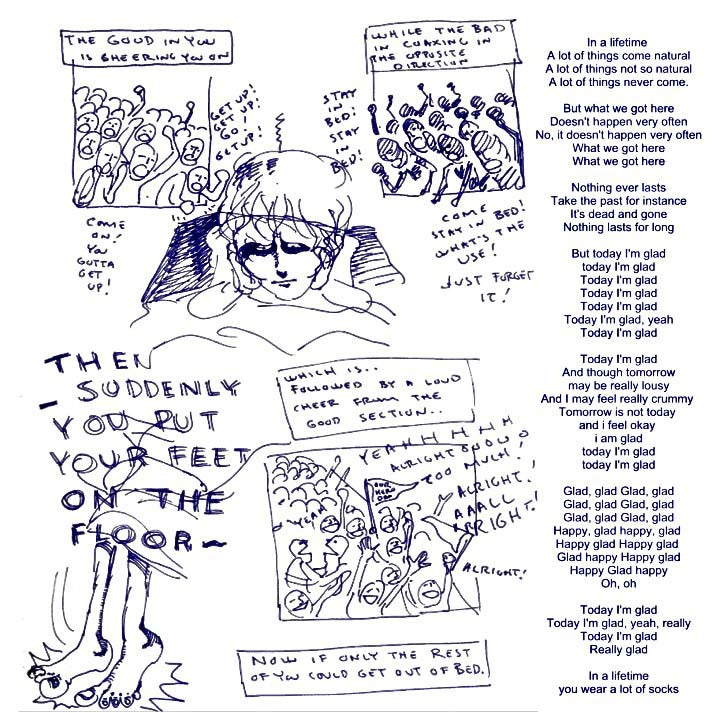 THE GOOD IN YOU
IS CHEERING YOU ON
WHILE THE BAD
IN COAXING IN
THE OPPOSITE
DIRECTION
GET UP!
GET UP!
GO!
GET UP!
STAY
IN
BED!
STAY
IN
BED!
COME
ON!
YOU
GOTTA
GET
UP!
COME
STAY IN BED!
WHAT'S THE
USE!
JUST FORGET
IT!
THEN
SUDDENLY
YOU PUT
YOUR FEET
ON THE
FLOOR~
WHICH IS..
FOLLOWED BY A LOUD
CHEER FROM THE
GOOD SECTION..
YEAHHHHH
TOO MUCH!
ALRIGHT!
AAALL
RRRIGHT!
YEAH
OUR
HERO
ALRIGHT!
NOW IF ONLY THE REST
OF YOU COULD GET OUT OF BED.
In a lifetime
A lot of things come natural
A lot of things not so natural
A lot of things never come.
But what we got here
Doesn't happen very often
No, it doesn't happen very often
What we got here
What we got here
Nothing ever lasts
Take the past for instance
It's dead and gone
Nothing lasts for long
But today I'm glad
today I'm glad
Today I'm glad
Today I'm glad
Today I'm glad
Today I'm glad, yeah
Today I'm glad
Today I'm glad
And though tomorrow
may be really lousy
And I may feel really crummy
Tomorrow is not today
and i feel okay
i am glad
today I'm glad
today I'm glad
Glad, glad Glad, glad
Glad, glad Glad, glad
Glad, glad Glad, glad
Happy, glad happy, glad
Happy glad Happy glad
Glad happy Happy glad
Happy Glad happy
Oh, oh
Today I'm glad
Today I'm glad, yeah, really
Today I'm glad
Really glad
In a lifetime
you wear a lot of socks